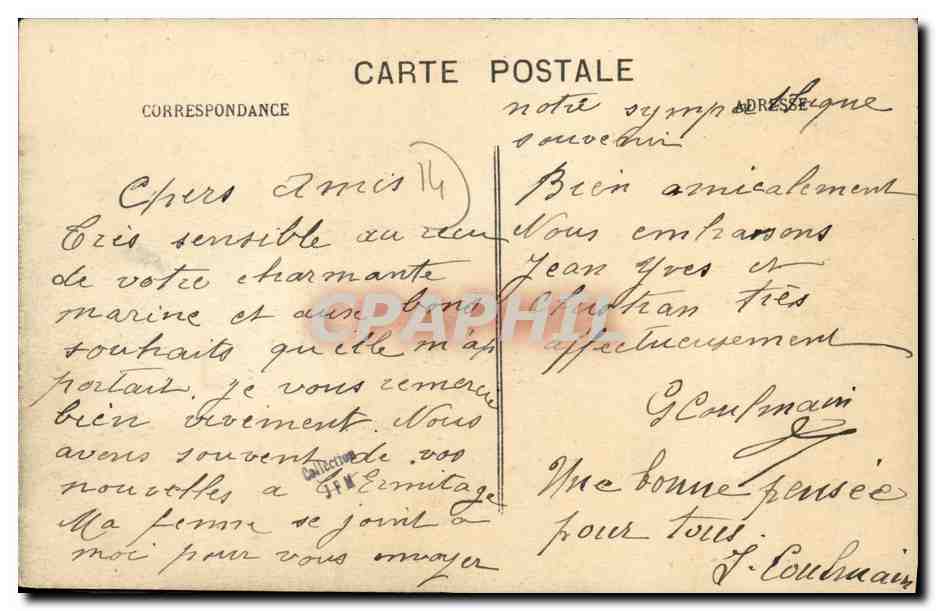 CARTE POSTALE
CORRESPONDANCE
ADRESSE
14
Chers Amis
Très sensible au
de votre charmante
marine et aux bons
souhaits qu'elle m'ap
portait. Je vous remercie
bien vivement. Nous
avons souvent de vos
nouvelles à l'Ermitage
Ma femme se joint à
moi pour vous envoyer
notre sympathique
souvenir
Bien amicalement
Nous embrassons
Jean Yves et
Christian très
affectueusement
G Coulmain
Une bonne pensée
pour tous.
J. Coulmain
Collection
J F M
CPAPHIL